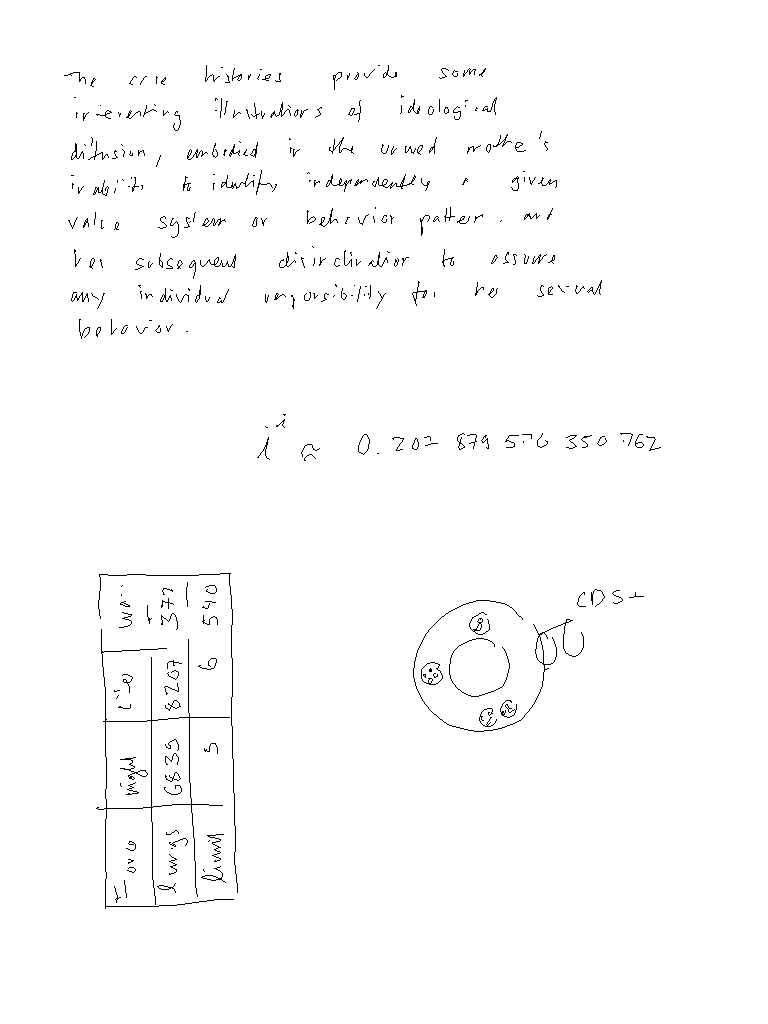 The case histories provide some
interesting illustrations of ideological
diffusion, embodied in the unwed mother's
inability to identify independently a given
value system or behavior pattern. and
her subsequent disinclination to assume
any individual responsibility for her sexual
behavior.
i^i ≈ 0.202 879 576 350 762
Force might
lungs 6839 8207 377
limit 5 6 540
CD5+